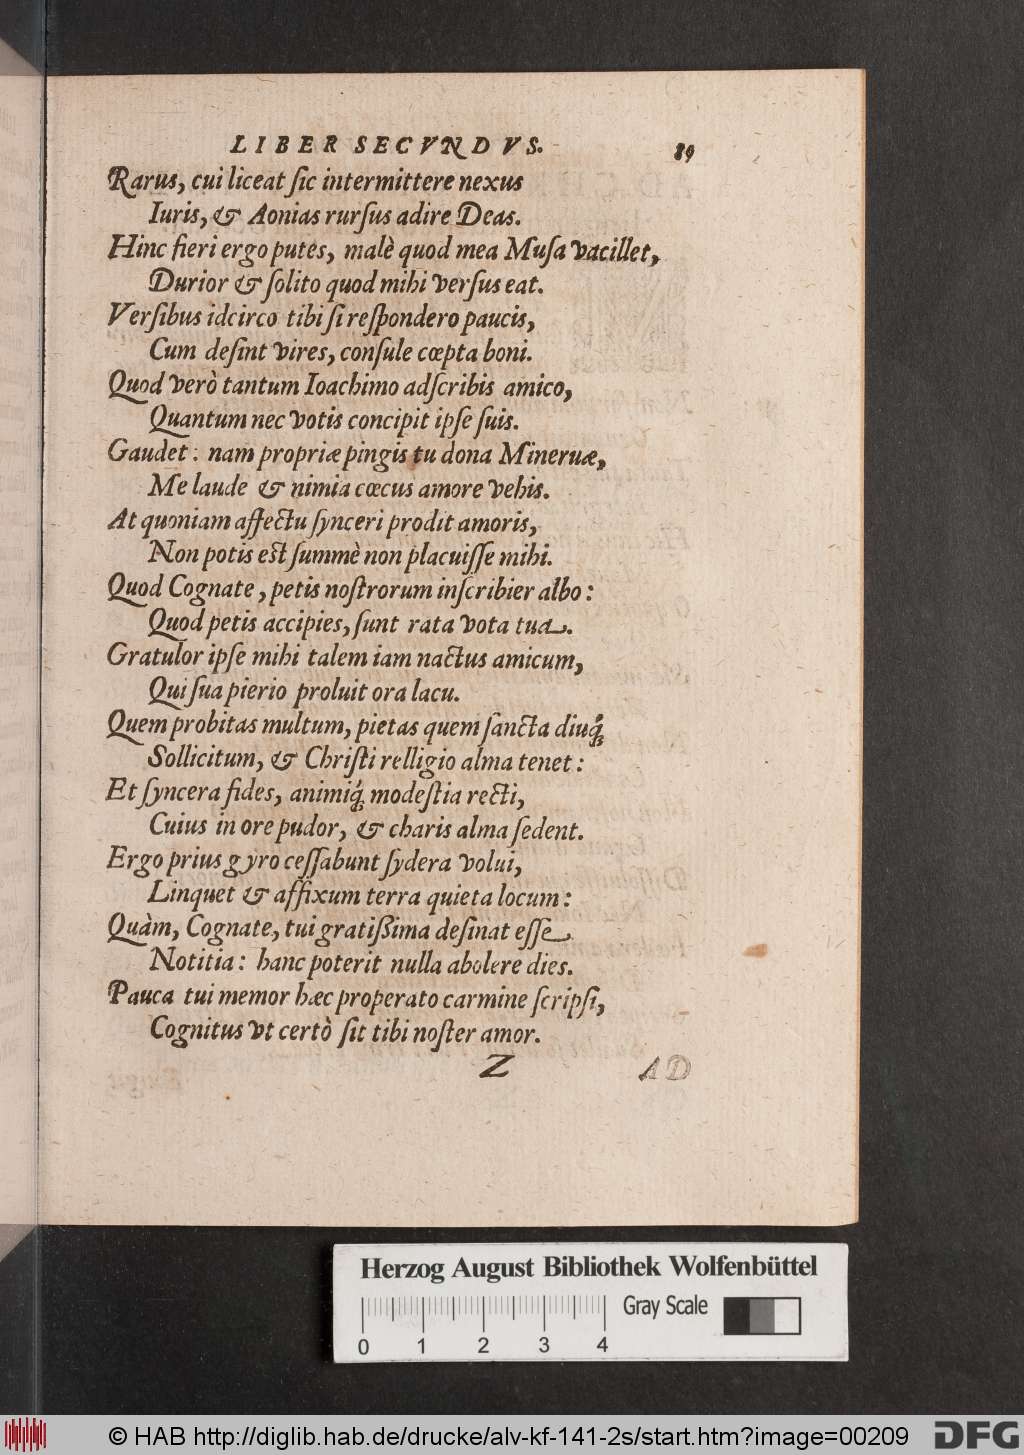 LIBER SECVNDVS. 89
Rarus, cui liceat ſic intermittere nexus
Iuris, & Aonias rurſus adire Deas.
Hinc fieri ergo putes, malè quod mea Muſa vacillet,
Durior & ſolito quod mihi verſus eat.
Verſibus idcirco tibi ſi reſpondero paucis,
Cum deſint vires, conſule cœpta boni.
Quod verò tantum Ioachimo adſcribis amico,
Quantum nec votis concipit ipſe ſuis.
Gaudet: nam propriæ pingis tu dona Mineruæ,
Me laude & nimia cœcus amore vehis.
At quoniam affectu ſynceri prodit amoris,
Non potis eſt ſummè non placuiſſe mihi.
Quod Cognate, petis noſtrorum inſcribier albo:
Quod petis accipies, ſunt rata vota tua.
Gratulor ipſe mihi talem iam nactus amicum,
Qui ſua pierio proluit ora lacu.
Quem probitas multum, pietas quem ſancta diuq́;
Sollicitum, & Chriſti relligio alma tenet:
Et ſyncera fides, animiq́; modeſtia recti,
Cuius in ore pudor, & charis alma ſedent.
Ergo prius gyro ceſſabunt ſydera volui,
Linquet & affixum terra quieta locum:
Quàm, Cognate, tui gratißima deſinat eſſe
Notitia: hanc poterit nulla abolere dies.
Pauca tui memor hæc properato carmine ſcripſi,
Cognitus vt certò ſit tibi noſter amor.
Z AD
Herzog August Bibliothek Wolfenbüttel
Gray Scale
0 1 2 3 4
© HAB http://diglib.hab.de/drucke/alv-kf-141-2s/start.htm?image=00209 DFG